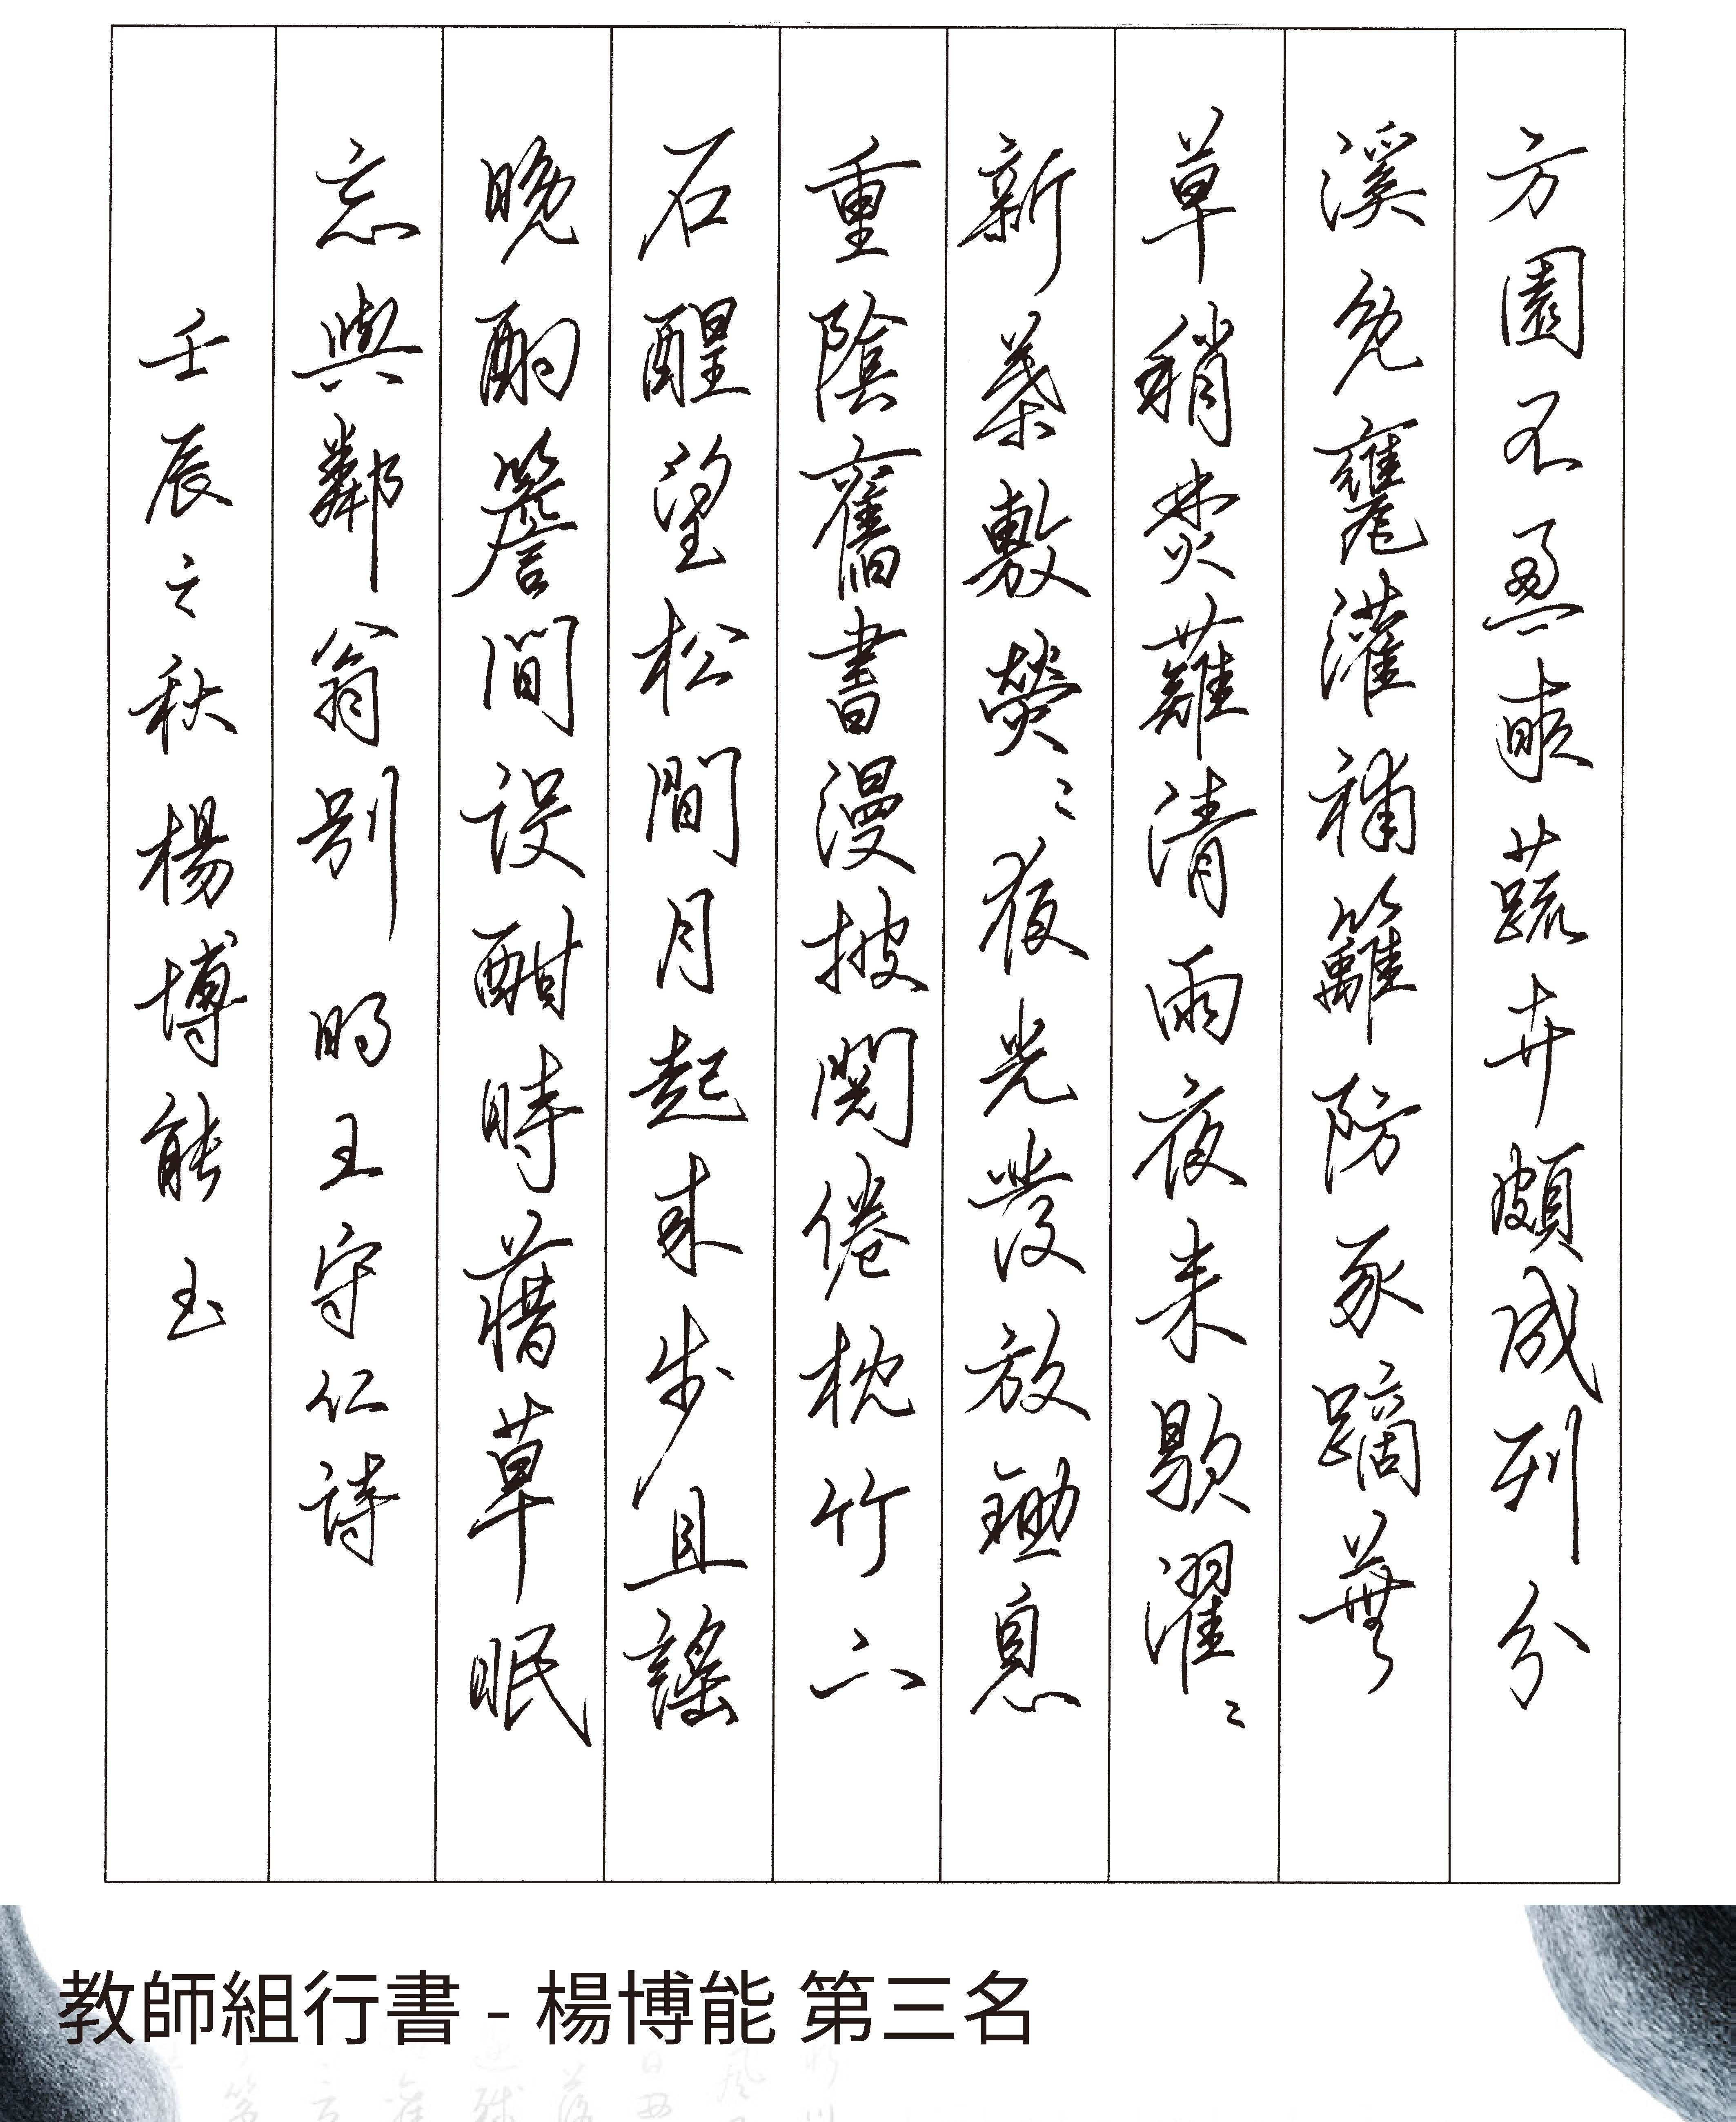 方園不盈畝蔬卉頗成列分
溪免甕灌補籬防豕蹢蕪
草稍焚薙清雨夜來歇濯〻
新葉敷熒〻夜光發放鋤息
重陰舊書漫披閱倦枕竹下
石醒望松間月起來步且謠
晚酌簷間設酣時藉草眠
忘與鄰翁別 明王守仁詩
壬辰之秋楊博能書
教師組行書 - 楊博能 第三名